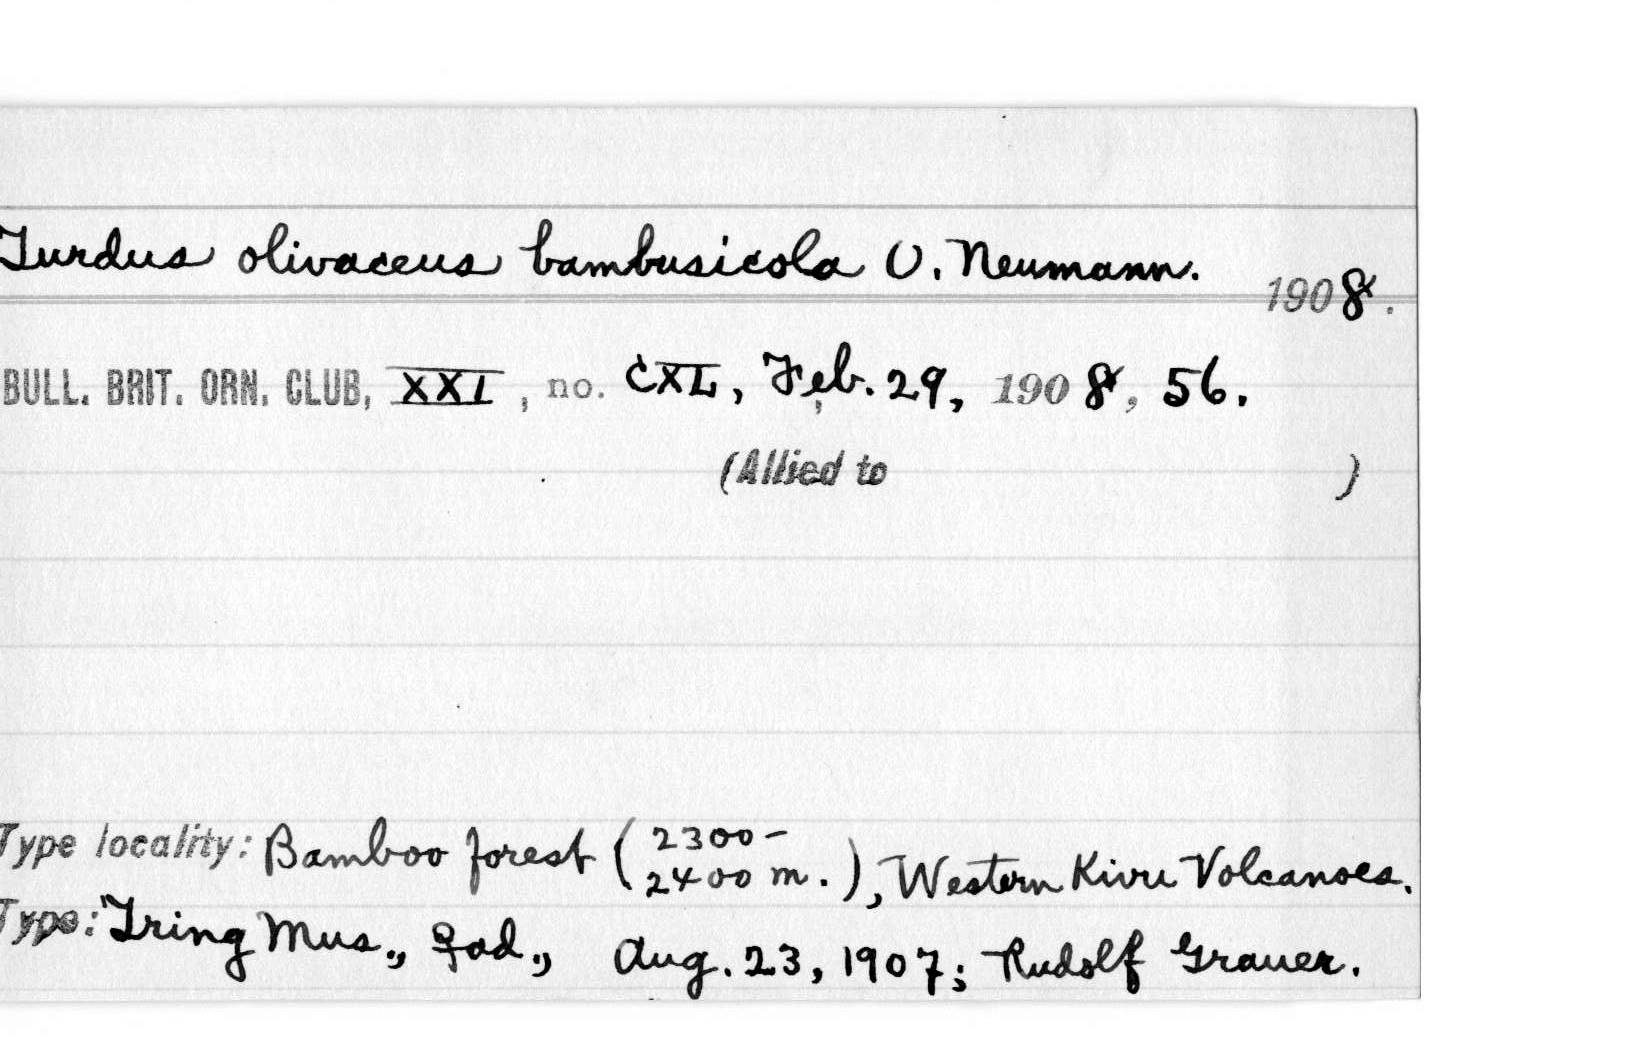 Turdus olivaceus bambusicola O. Neumann.
1908.
BULL. BRIT. ORN. CLUB, XXI, no. CXL, Feb. 29, 1908, 56.
(Allied to )
Type locality: Bamboo forest (2300-2400 m.), Western Kivu Volcanoes.
Type: Tring Mus., ♀ad., Aug. 23, 1907; Rudolf Grauer.